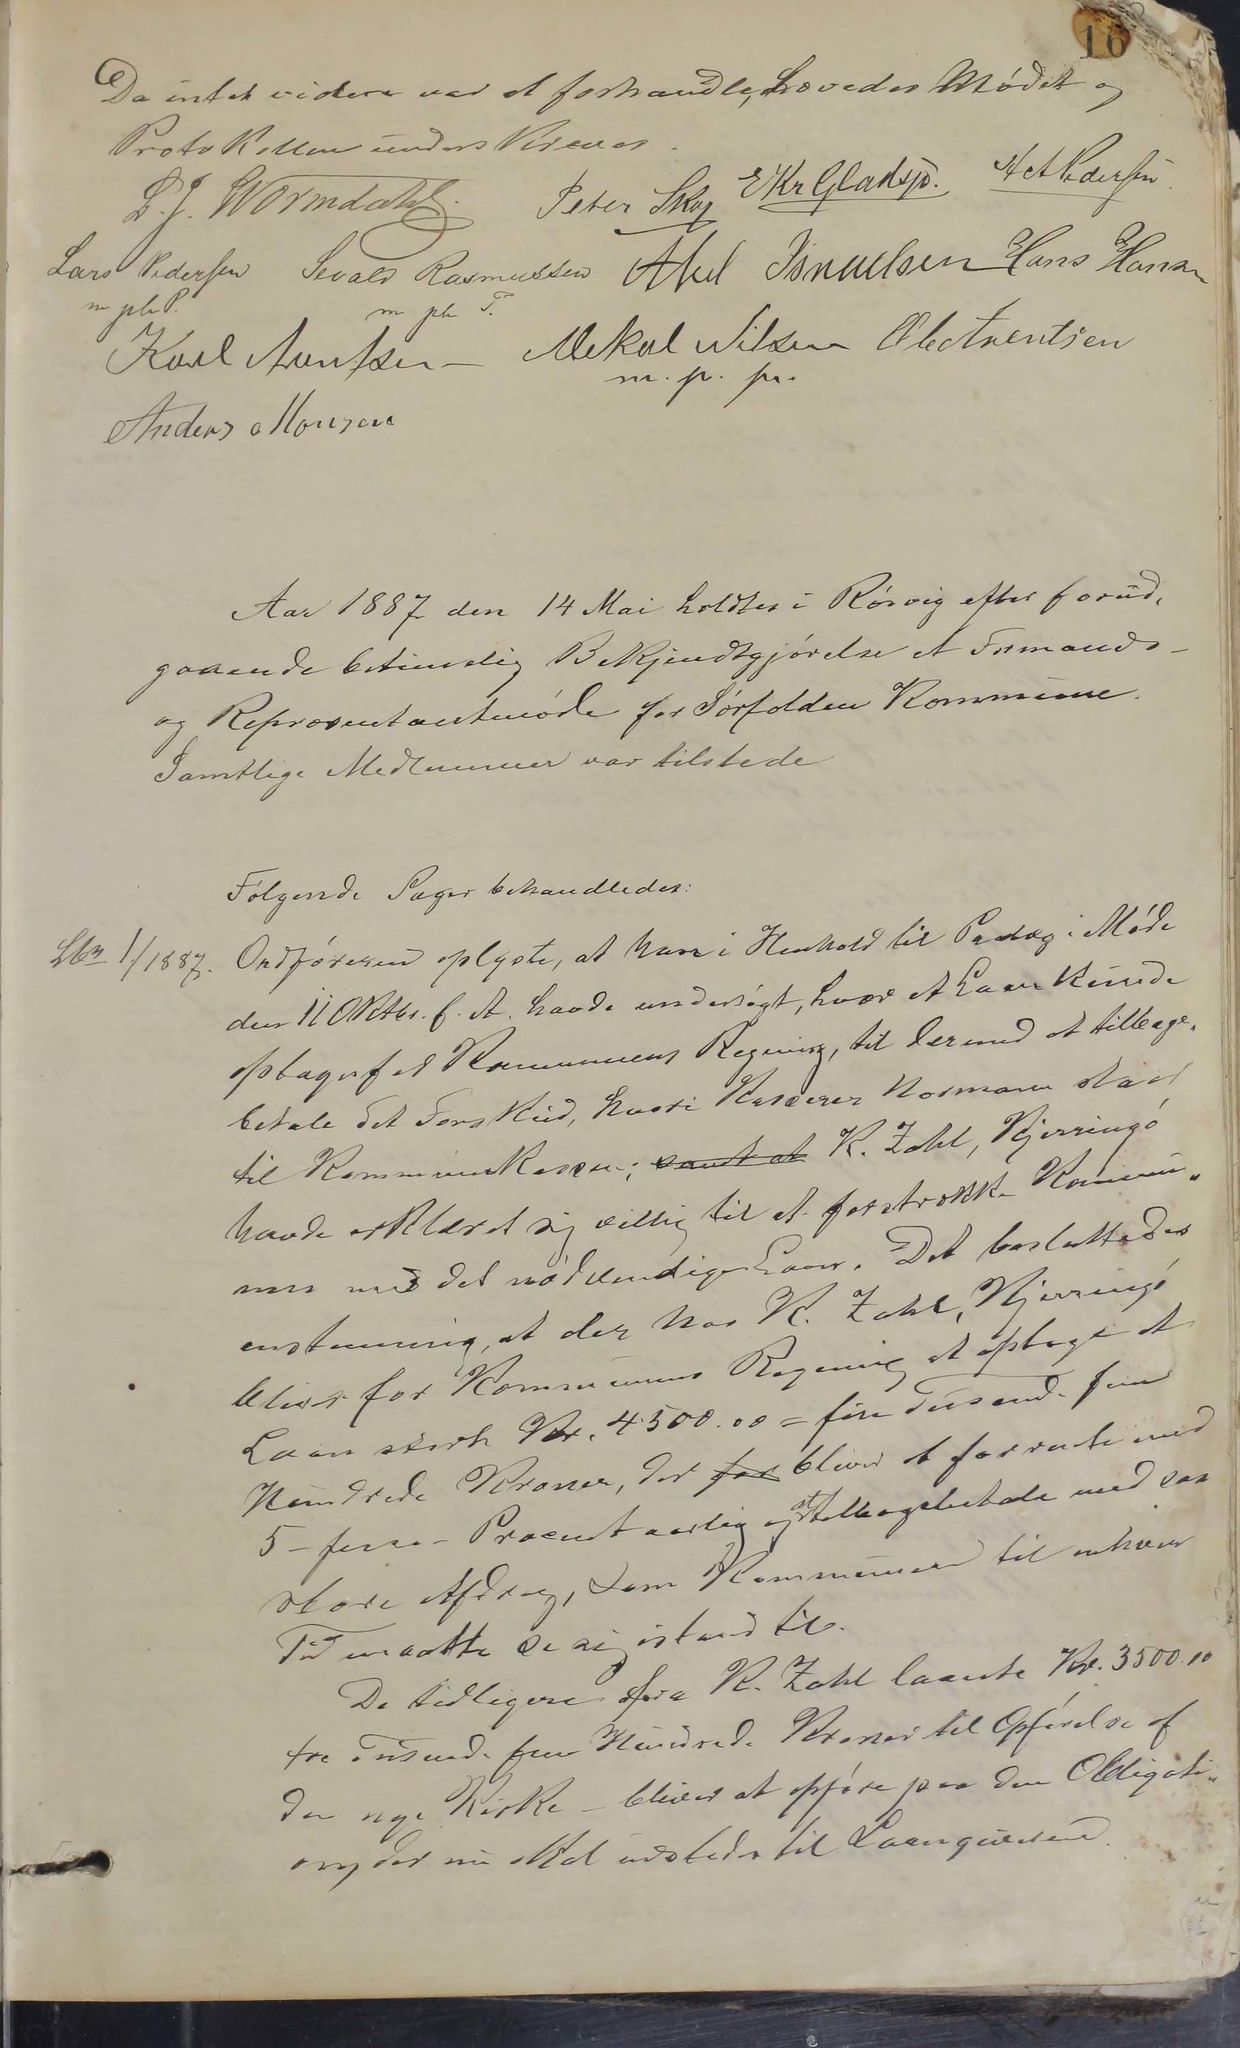 16
Da intet videre var at forhandle, hævedes Mödet og
Protokollen underskreves.
L. J. Wormdahl. Peter Skog E Kr Gladsjø. A Pedersen
Lars Pedersen Sevald Rasmussen Abel Israelsen Hans Hansen
m. p. P. m. p. P.
Karl Arntsen Mekal Nilsen Ole Arentsen
m. p. p.
Anders Monsen
Aar 1887 den 14 Mai holdtes i Rösvig efter forud,
gaaende betimelig Bekjendtgjörelse et Formands-
og Repræsentantmöde for Sörfolden Kommune.
Samtlige Medlemmer var tilstede
Fölgende Sager behandledes:
Lbn 1/1887. Ordföreren oplyste, at han i Henhold til Pødag i Möde
den 11 Oktbr. f. A. havde undersögt, hvor et Laan kunde
optages for Kommunens Regning, til dermed at tilbage,
betale det Forskud, hvori Kasserer Normann staar
til Kommunekassen; samt at K. Zahl, Kjerringö
havde erklæret sig villig til at forstrække Kommu,
nen med det nödvendige Laan. Det besluttedes
enstemmig, at der hos K. Zahl, Kjerringö
bliver for Kommunens Regning at optage et
Laan stort Kr. 4500.00 = fire Tusend fem
Hundrede Kroner, der for bliver at forrente med
5 - fem - Procent aarlig og at tilbagebetale med saa
store Afdrag, som Kommunen til enhver
Tid maatte se sig istand til.
De tidligere fra K. Zahl laante Kr. 3500.00
tre Tusend fem Hundrede Kroner til Opförelse af
den nye Kirke - bliver at opföre paa den Obligati,
on, der nu skal udstedes til Laangiveren.